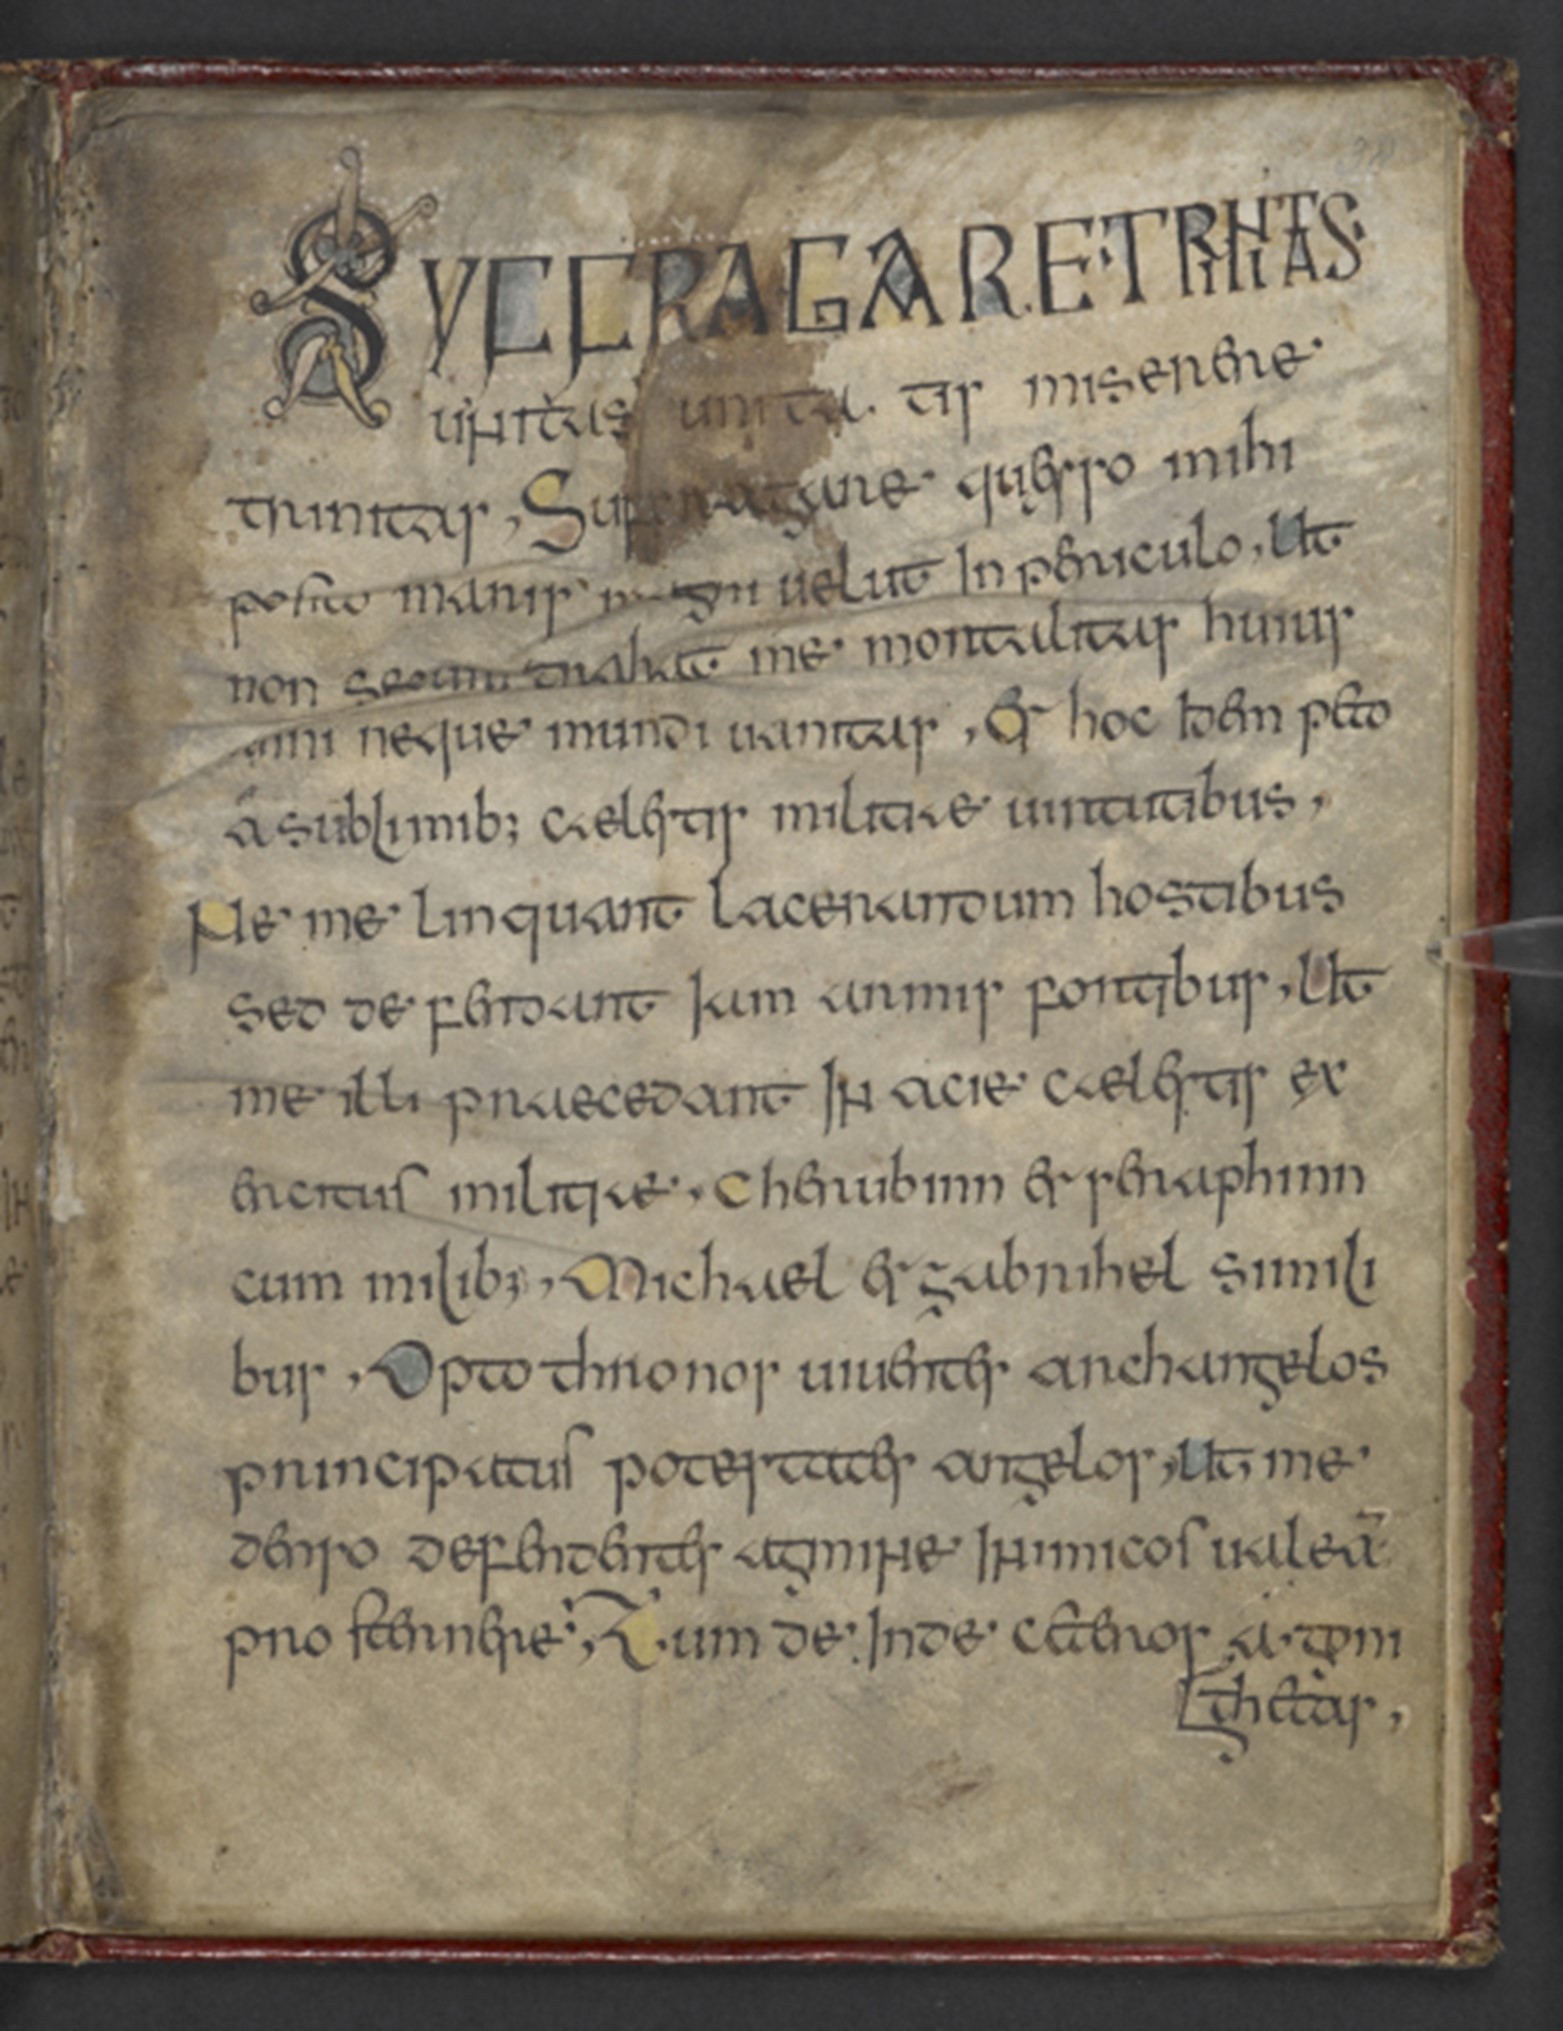 SUFFRAGARE TRINITAS
unitas unita tis miserere
trinitas, Suffragare queso mihi
posito maris magni uelut In periculo, Ut
non secum trahat me mortalitas huius
anni neque mundi uanitas, Et hoc Idem peto
a sublimib; caelestis militiae uirtutibus,
Ne me linquant lacerandum hostibus
sed defendant Iam armis fortibus, Ut
me illi praecedant In acie caelestis ex
ercitus militiae, Cherubinn et seraphinn
cum milib;, Michael et gabrihel simili
bus, Opto thronos uiuentes archangelos
principatus potestates angelos, Ut me
denso defendentes agmine Inimicos ualeā
prosternere, Tum deInde ceteros agoni
thetas,